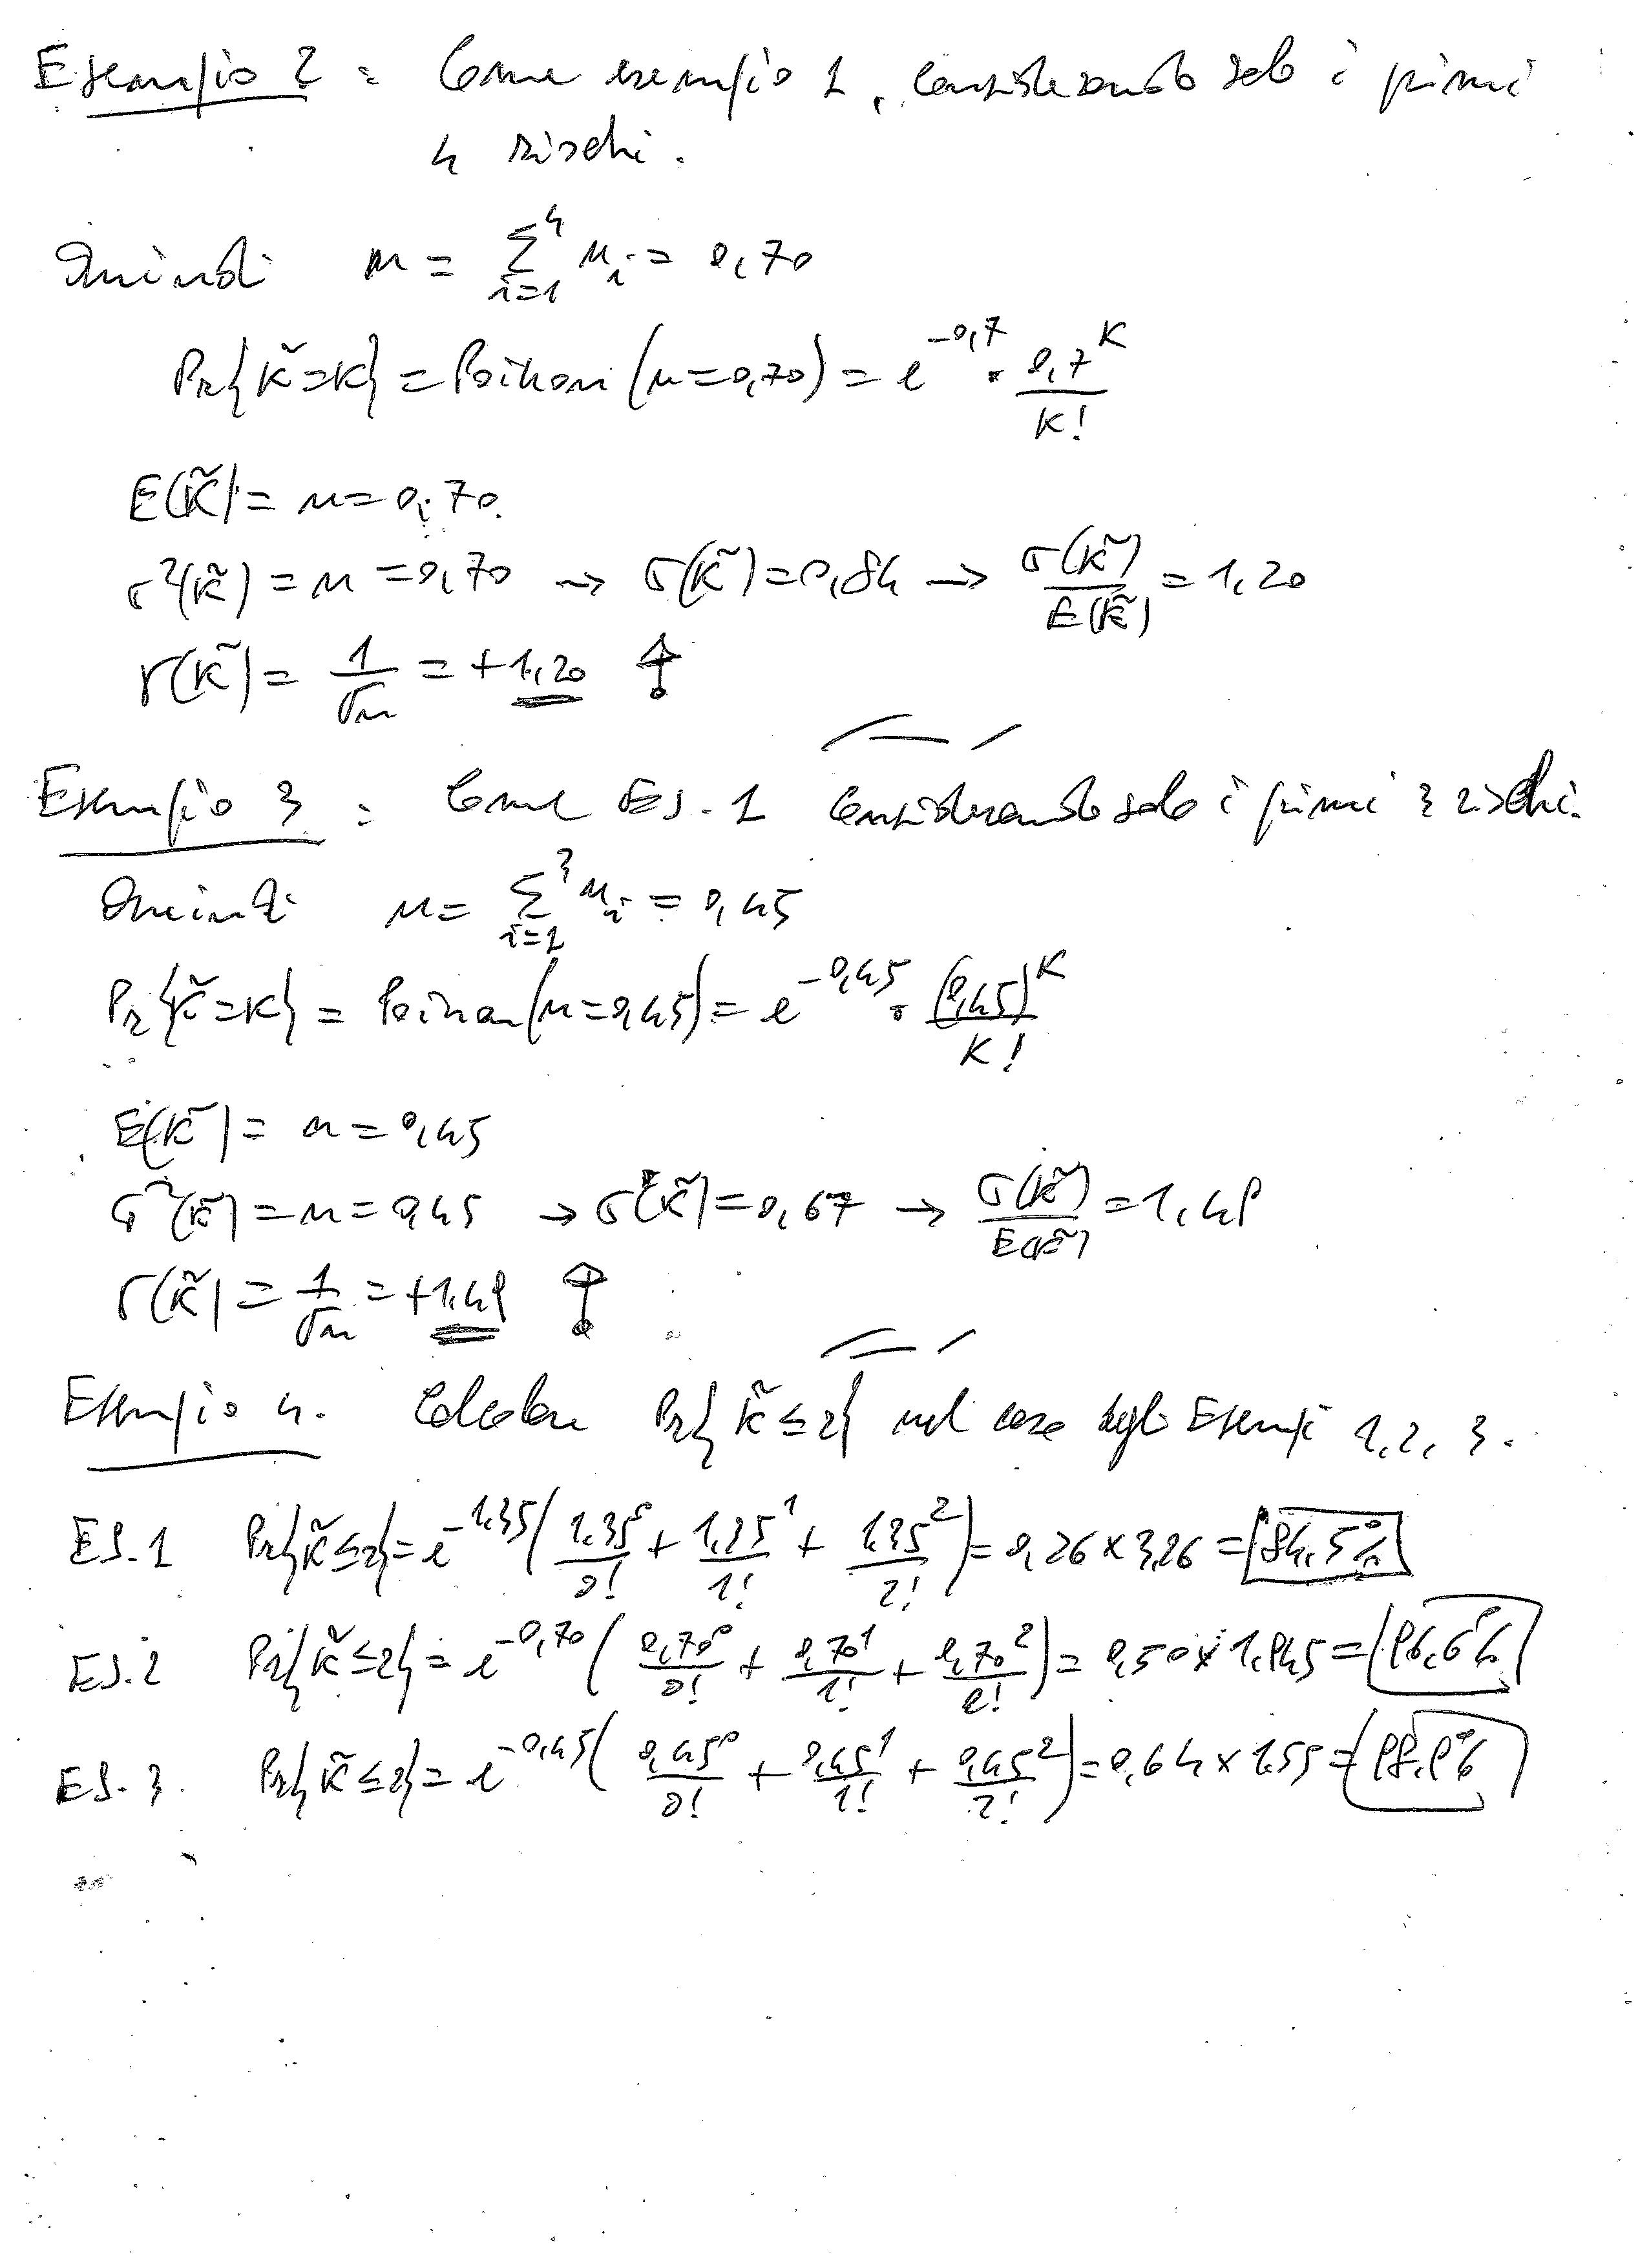 Esempio 2 : Come esempio 1, considerando solo i primi
4 rischi.
Quindi n = Σ_{i=1}^{4} n_i = 0,70
Pr{K̃=K} = Poisson (n=0,70) = e^{-0,7} · 0,7^K / K!
E(K̃) = n = 0,70
σ²(K̃) = n = 0,70 → σ(K̃) = 0,84 → σ(K̃)/E(K̃) = 1,20
γ(K̃) = 1/√n = +1,20 ↑
Esempio 3 : Come Es. 1 considerando solo i primi 3 rischi.
Quindi n = Σ_{i=1}^{3} n_i = 0,45
Pr{K̃=K} = Poisson (n=0,45) = e^{-0,45} · (0,45)^K / K!
E(K̃) = n = 0,45
σ²(K̃) = n = 0,45 → σ(K̃) = 0,67 → σ(K̃)/E(K̃) = 1,49
γ(K̃) = 1/√n = +1,49 ↑
Esempio 4. Calcolare Pr{K̃≤2} nel caso degli Esempi 1, 2, 3.
ES.1 Pr{K̃≤2} = e^{-1,35} (1,35^0/0! + 1,35^1/1! + 1,35^2/2!) = 0,26 × 3,26 = 84,5%
ES.2 Pr{K̃≤2} = e^{-0,70} (0,70^0/0! + 0,70^1/1! + 0,70^2/2!) = 0,50 × 1,945 = 96,6%
ES.3. Pr{K̃≤2} = e^{-0,45} (0,45^0/0! + 0,45^1/1! + 0,45^2/2!) = 0,64 × 1,55 = 98,9%